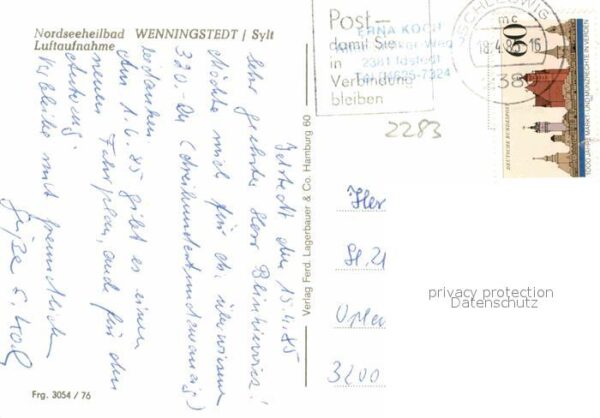 Nordseeheilbad WENNINGSTEDT / Sylt
Luftaufnahme
Post-
damit Sie
in
Verbindung
bleiben
ERNA KOCH
2381 Idstedt
Tel. 04625-7324
SCHLESWIG
mc
18.4.85.16
238
60
DEUTSCHE BUNDESPOST
2283
Idstedt den 15.4.85
Sehr geehrter Herr
Möchte mich für die überwiesene
320.-DM (dreihundertundzwanzig)
bedanken.
Am 1.6.85 gibt es einen
neuen Fahrplan, auch für den
Verbleibe mit freundlichen
Grüße E. Koch
Verlag Ferd. Lagerbauer & Co. Hamburg 60
Her
St. 21
3200
privacy protection
Datenschutz
Frg. 3054 / 76